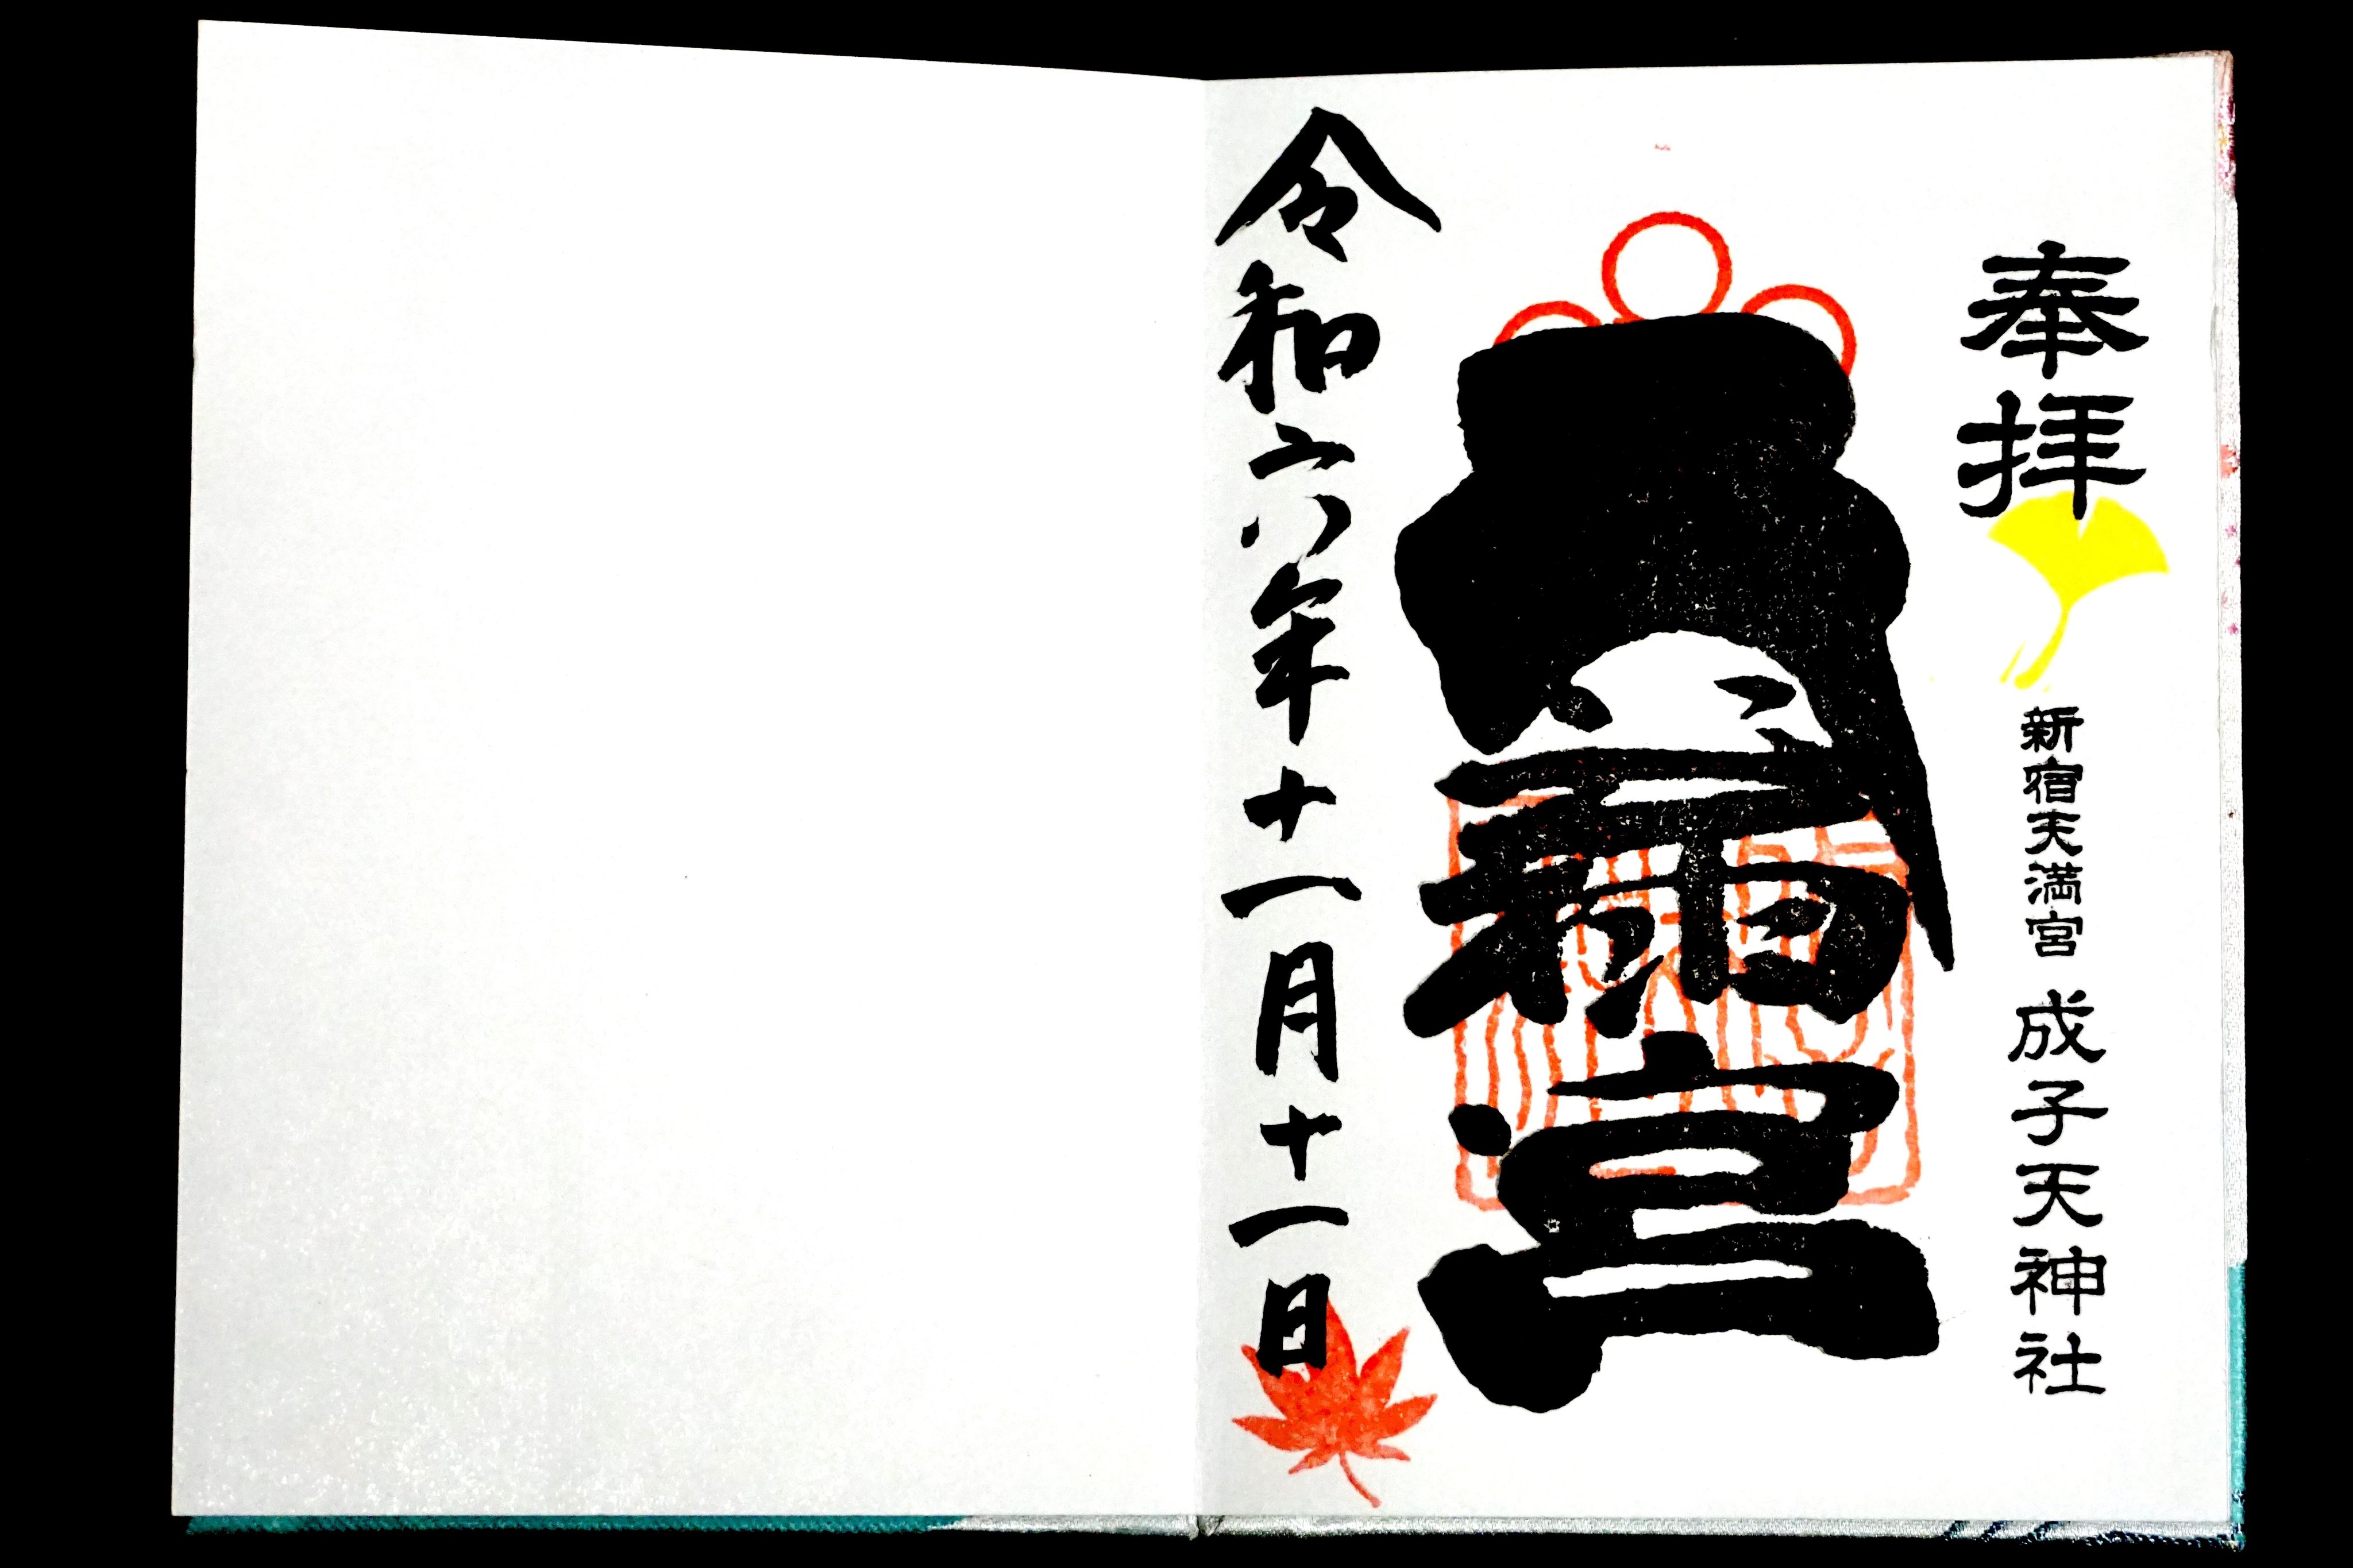 奉拝
新宿天満宮 成子天神社
宮
令和六年十一月十一日